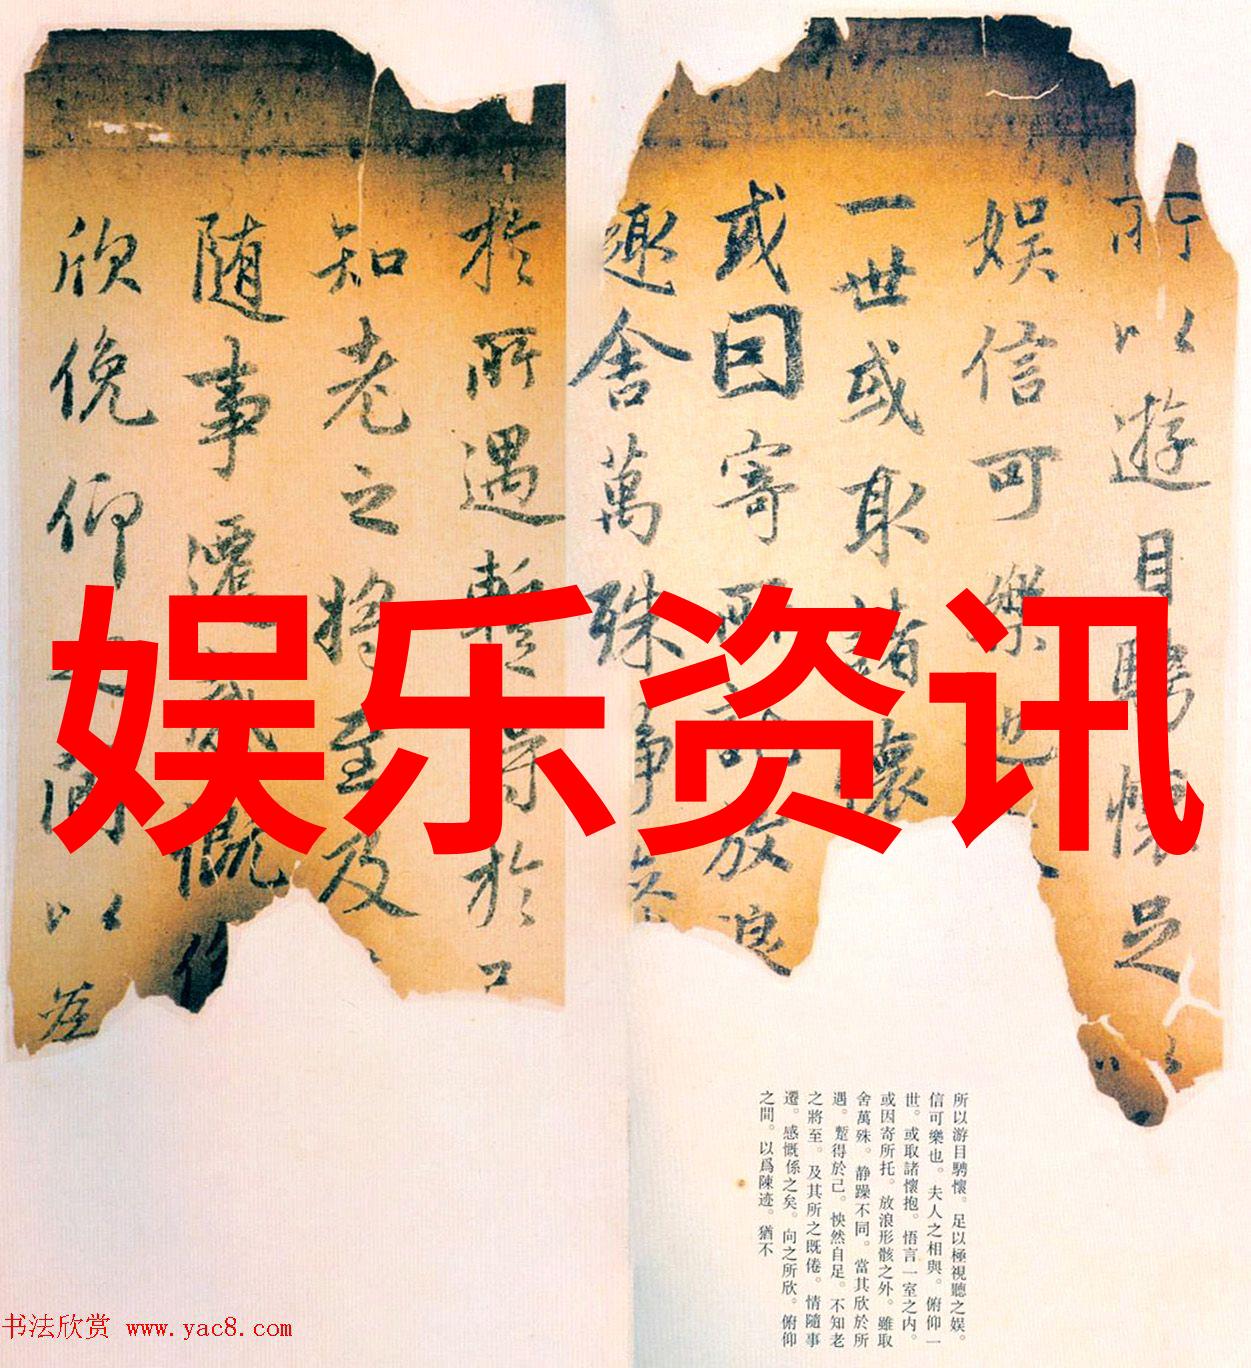 所以遊目騁懷足以
娱信可樂也
一世或取諸懷
或因寄所託放浪
趣舍萬殊静
於所遇暫得於己
知老之将至及
随事遷感慨係
欣俛仰之間以為
娱乐资讯
所以游目騁懷。足以極視聽之娱。
信可樂也。夫人之相與。俯仰一
世。或取諸懷抱。悟言一室之内。
或因寄所托。放浪形骸之外。雖取
舍萬殊。静躁不同。當其欣於所
遇。蹔得於己。怏然自足。不知老
之將至。及其所之既倦。情隨事
遷。感慨係之矣。向之所欣。俯仰
之間。以爲陳迹。猶不
书法欣赏 www.yac8.com